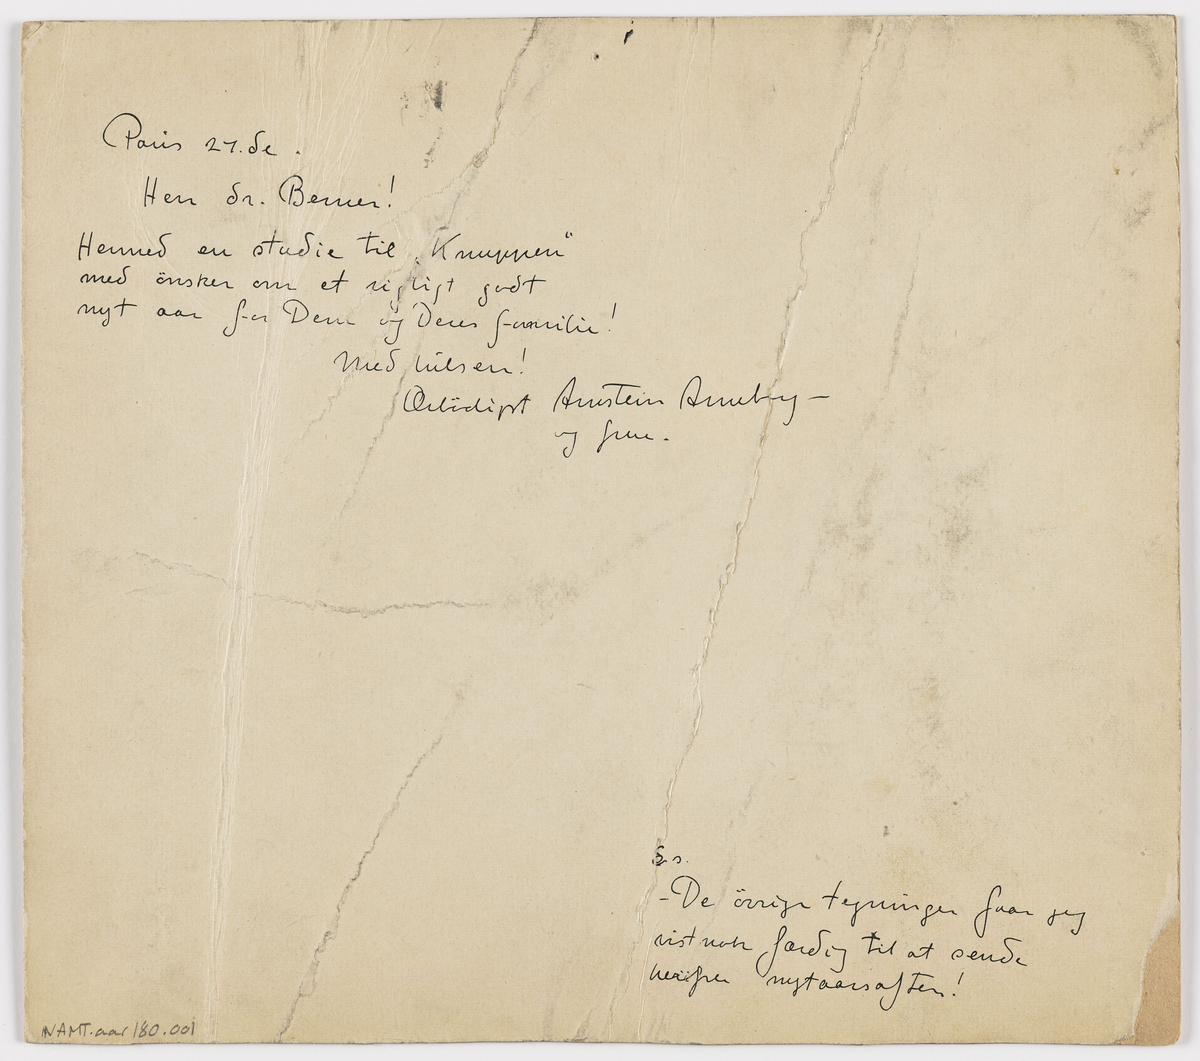 Paris 27.de.
Herr dr. Berner!
Hermed en studie til „Knappen“
med önsker om et rigtigt godt
nyt aar for Dem og Deres familie!
Med hilsen!
Ærbødigst Arnstein Arneberg —
og frue.
S.s.
- De övrige tegninger faar jeg
vistnok færdig til at sende
herifra nytaarsaften!
NAMT.aar180.001